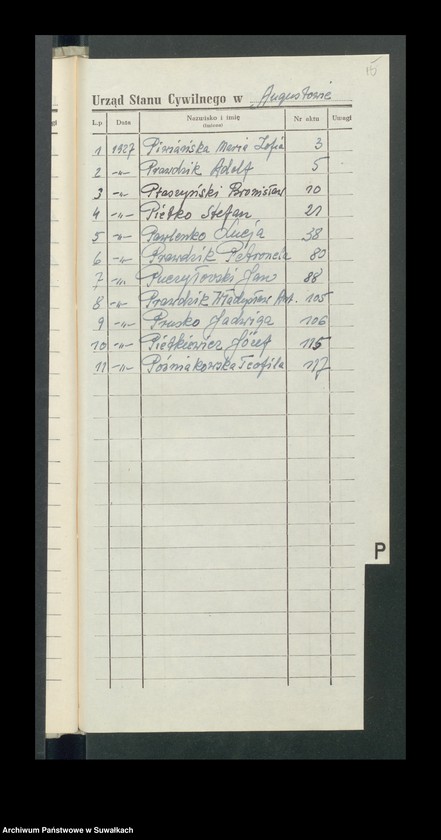 15
Urząd Stanu Cywilnego w Augustowie
L.p. Data Nazwisko i imię Nr aktu Uwagi
1 1927 Maria Zofia 3
2 -"- Prawdzik Adolf 5
3 -"- Ptaszyński Bronisław 10
4 -"- Pietko Stefan 21
5 -"- Pawlenko Łucja 38
6 -"- Prawdzik Petronela 80
7 -"- Puczyłowski Jan 88
8 -"- Prawdzik Władysław Ant. 105
9 -"- Prusko Jadwiga 106
10 -"- Pietkiewicz Józef 115
11 -"- Poźniakowska Teofila 117
P
Archiwum Państwowe w Suwałkach